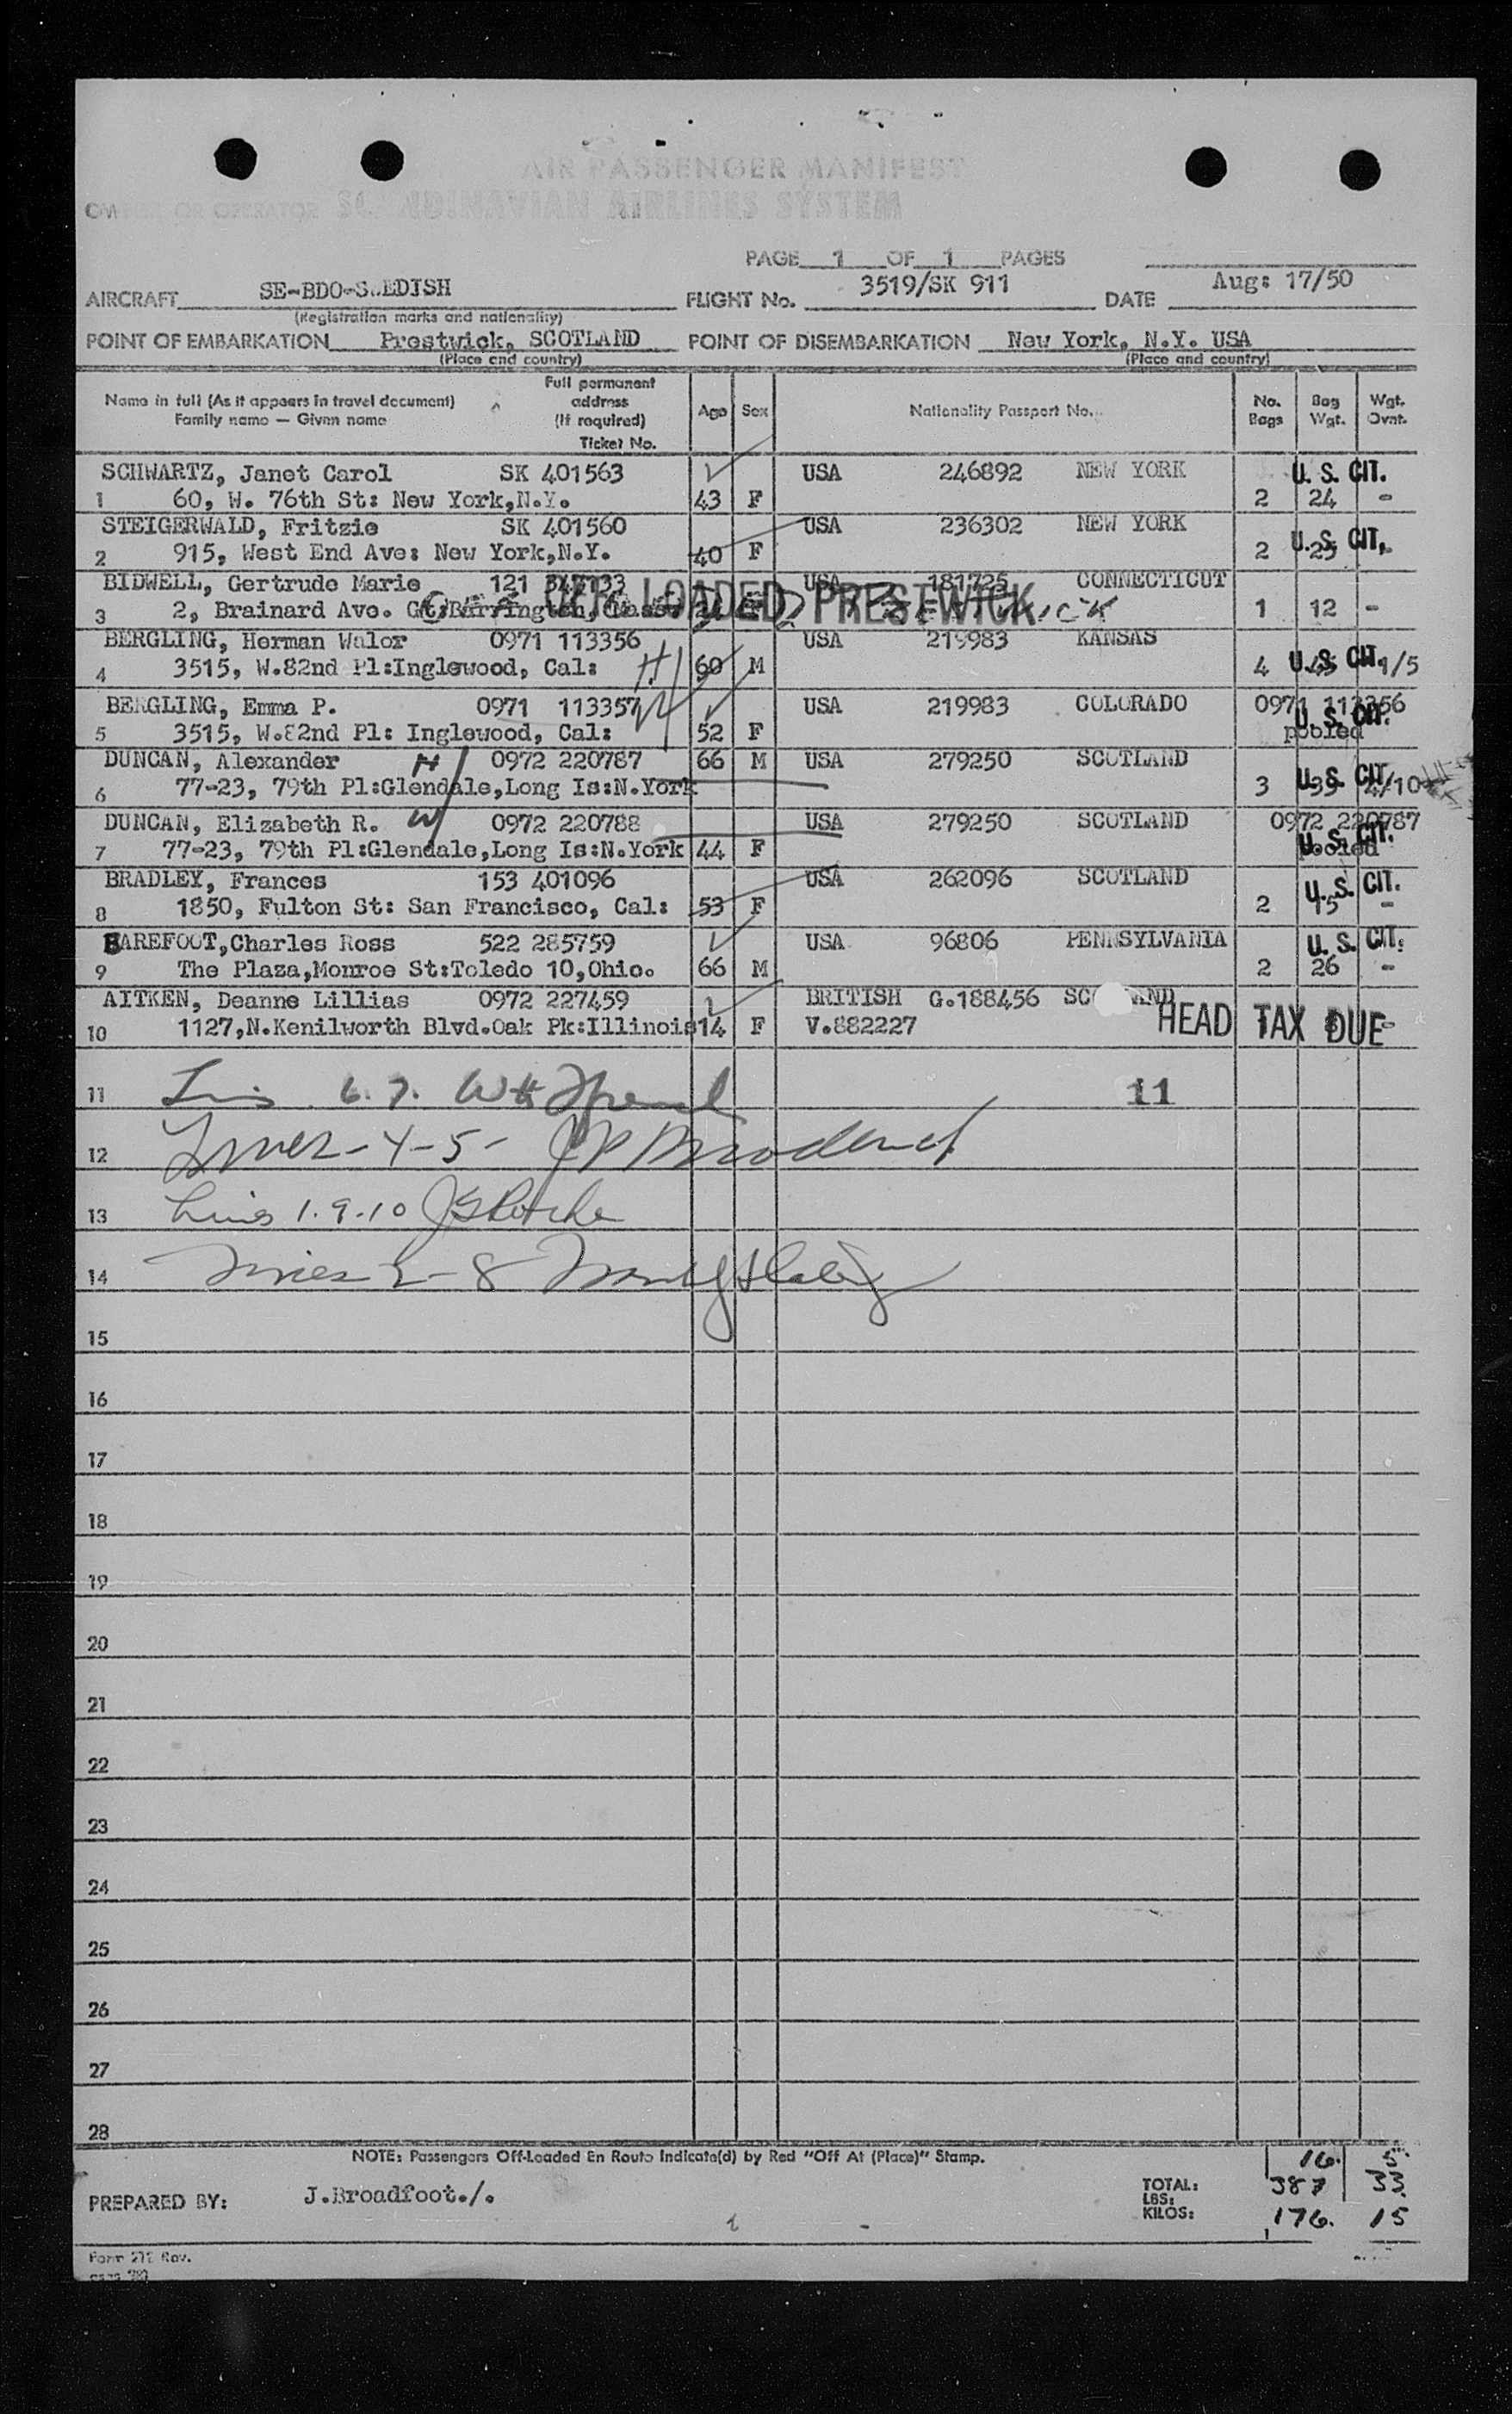 AIR PASSENGER MANIFEST
OWNER OR OPERATOR SCANDINAVIAN AIRLINES SYSTEM
PAGE 1 OF 1 PAGES
AIRCRAFT SE-BDO-SWEDISH FLIGHT No. 3519/SK 911 DATE Aug: 17/50
(Registration marks and nationality)
POINT OF EMBARKATION Prestwick, SCOTLAND POINT OF DISEMBARKATION New York, N.Y. USA
(Place and country) (Place and country)
Name in full (As it appears in travel document)
Family name — Given name
Full permanent
address
(If required)
Ticket No.
Age Sex Nationality Passport No.
No.
Bags
Bag
Wgt.
Wgt.
Ovnt.
SCHWARTZ, Janet Carol SK 401563 USA 246892 NEW YORK U. S. CIT.
1 60, W. 76th St: New York,N.Y. 43 F 2 24 -
STEIGERWALD, Fritzie SK 401560 USA 236302 NEW YORK
2 915, West End Ave: New York,N.Y. 40 F 2 U. S. CIT.
BIDWELL, Gertrude Marie 121 USA 181725 CONNECTICUT
3 2, Brainard Ave. OFF LOADED PRESTWICK 1 12 -
BERGLING, Herman Walor 0971 113356 USA 219983 KANSAS
4 3515, W.82nd Pl:Inglewood, Cal: H 60 M 4 U. S. CIT. 1/5
BERGLING, Emma P. 0971 113357 W USA 219983 COLORADO 0971 113356
5 3515, W.82nd Pl: Inglewood, Cal: 52 F U. S. CIT. pooled
DUNCAN, Alexander H 0972 220787 66 M USA 279250 SCOTLAND
6 77-23, 79th Pl:Glendale,Long Is:N.York 3 U. S. CIT. 4/10
DUNCAN, Elizabeth R. W 0972 220788 USA 279250 SCOTLAND 0972 220787
7 77-23, 79th Pl:Glendale,Long Is:N.York 44 F U. S. CIT. pooled
BRADLEY, Frances 153 401096 USA 262096 SCOTLAND U. S. CIT.
8 1850, Fulton St: San Francisco, Cal: 53 F 2 15 -
BAREFOOT,Charles Ross 522 285759 USA 96806 PENNSYLVANIA U. S. CIT.
9 The Plaza,Monroe St:Toledo 10,Ohio. 66 M 2 26 -
AITKEN, Deanne Lillias 0972 227459 BRITISH G.188456 SCOTLAND
10 1127,N.Kenilworth Blvd.Oak Pk:Illinois 14 F V.882227 HEAD TAX DUE -
11 6. 7. 11
12 Lines - 4-5-
13 Lines 1.9.10
14 Lines 2-8
15
16
17
18
19
20
21
22
23
24
25
26
27
28
NOTE: Passengers Off-Loaded En Route Indicate(d) by Red "Off At (Place)" Stamp.
16. 5.
PREPARED BY: J.Broadfoot./. TOTAL:
LBS: 387 33
KILOS: 176. 15